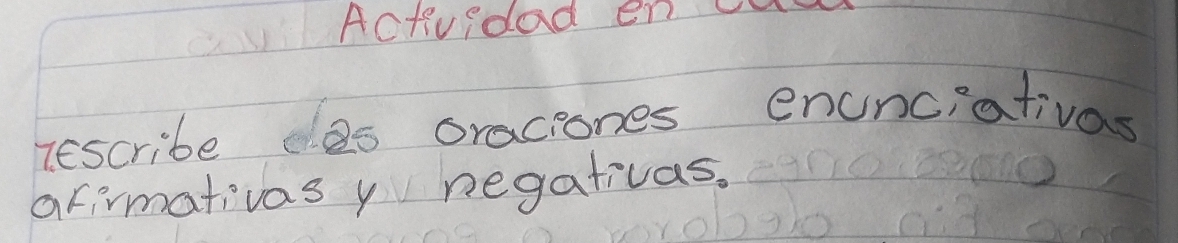 Actividad en
1escribe dos oraciones enunciativas
afirmativas y negativas.